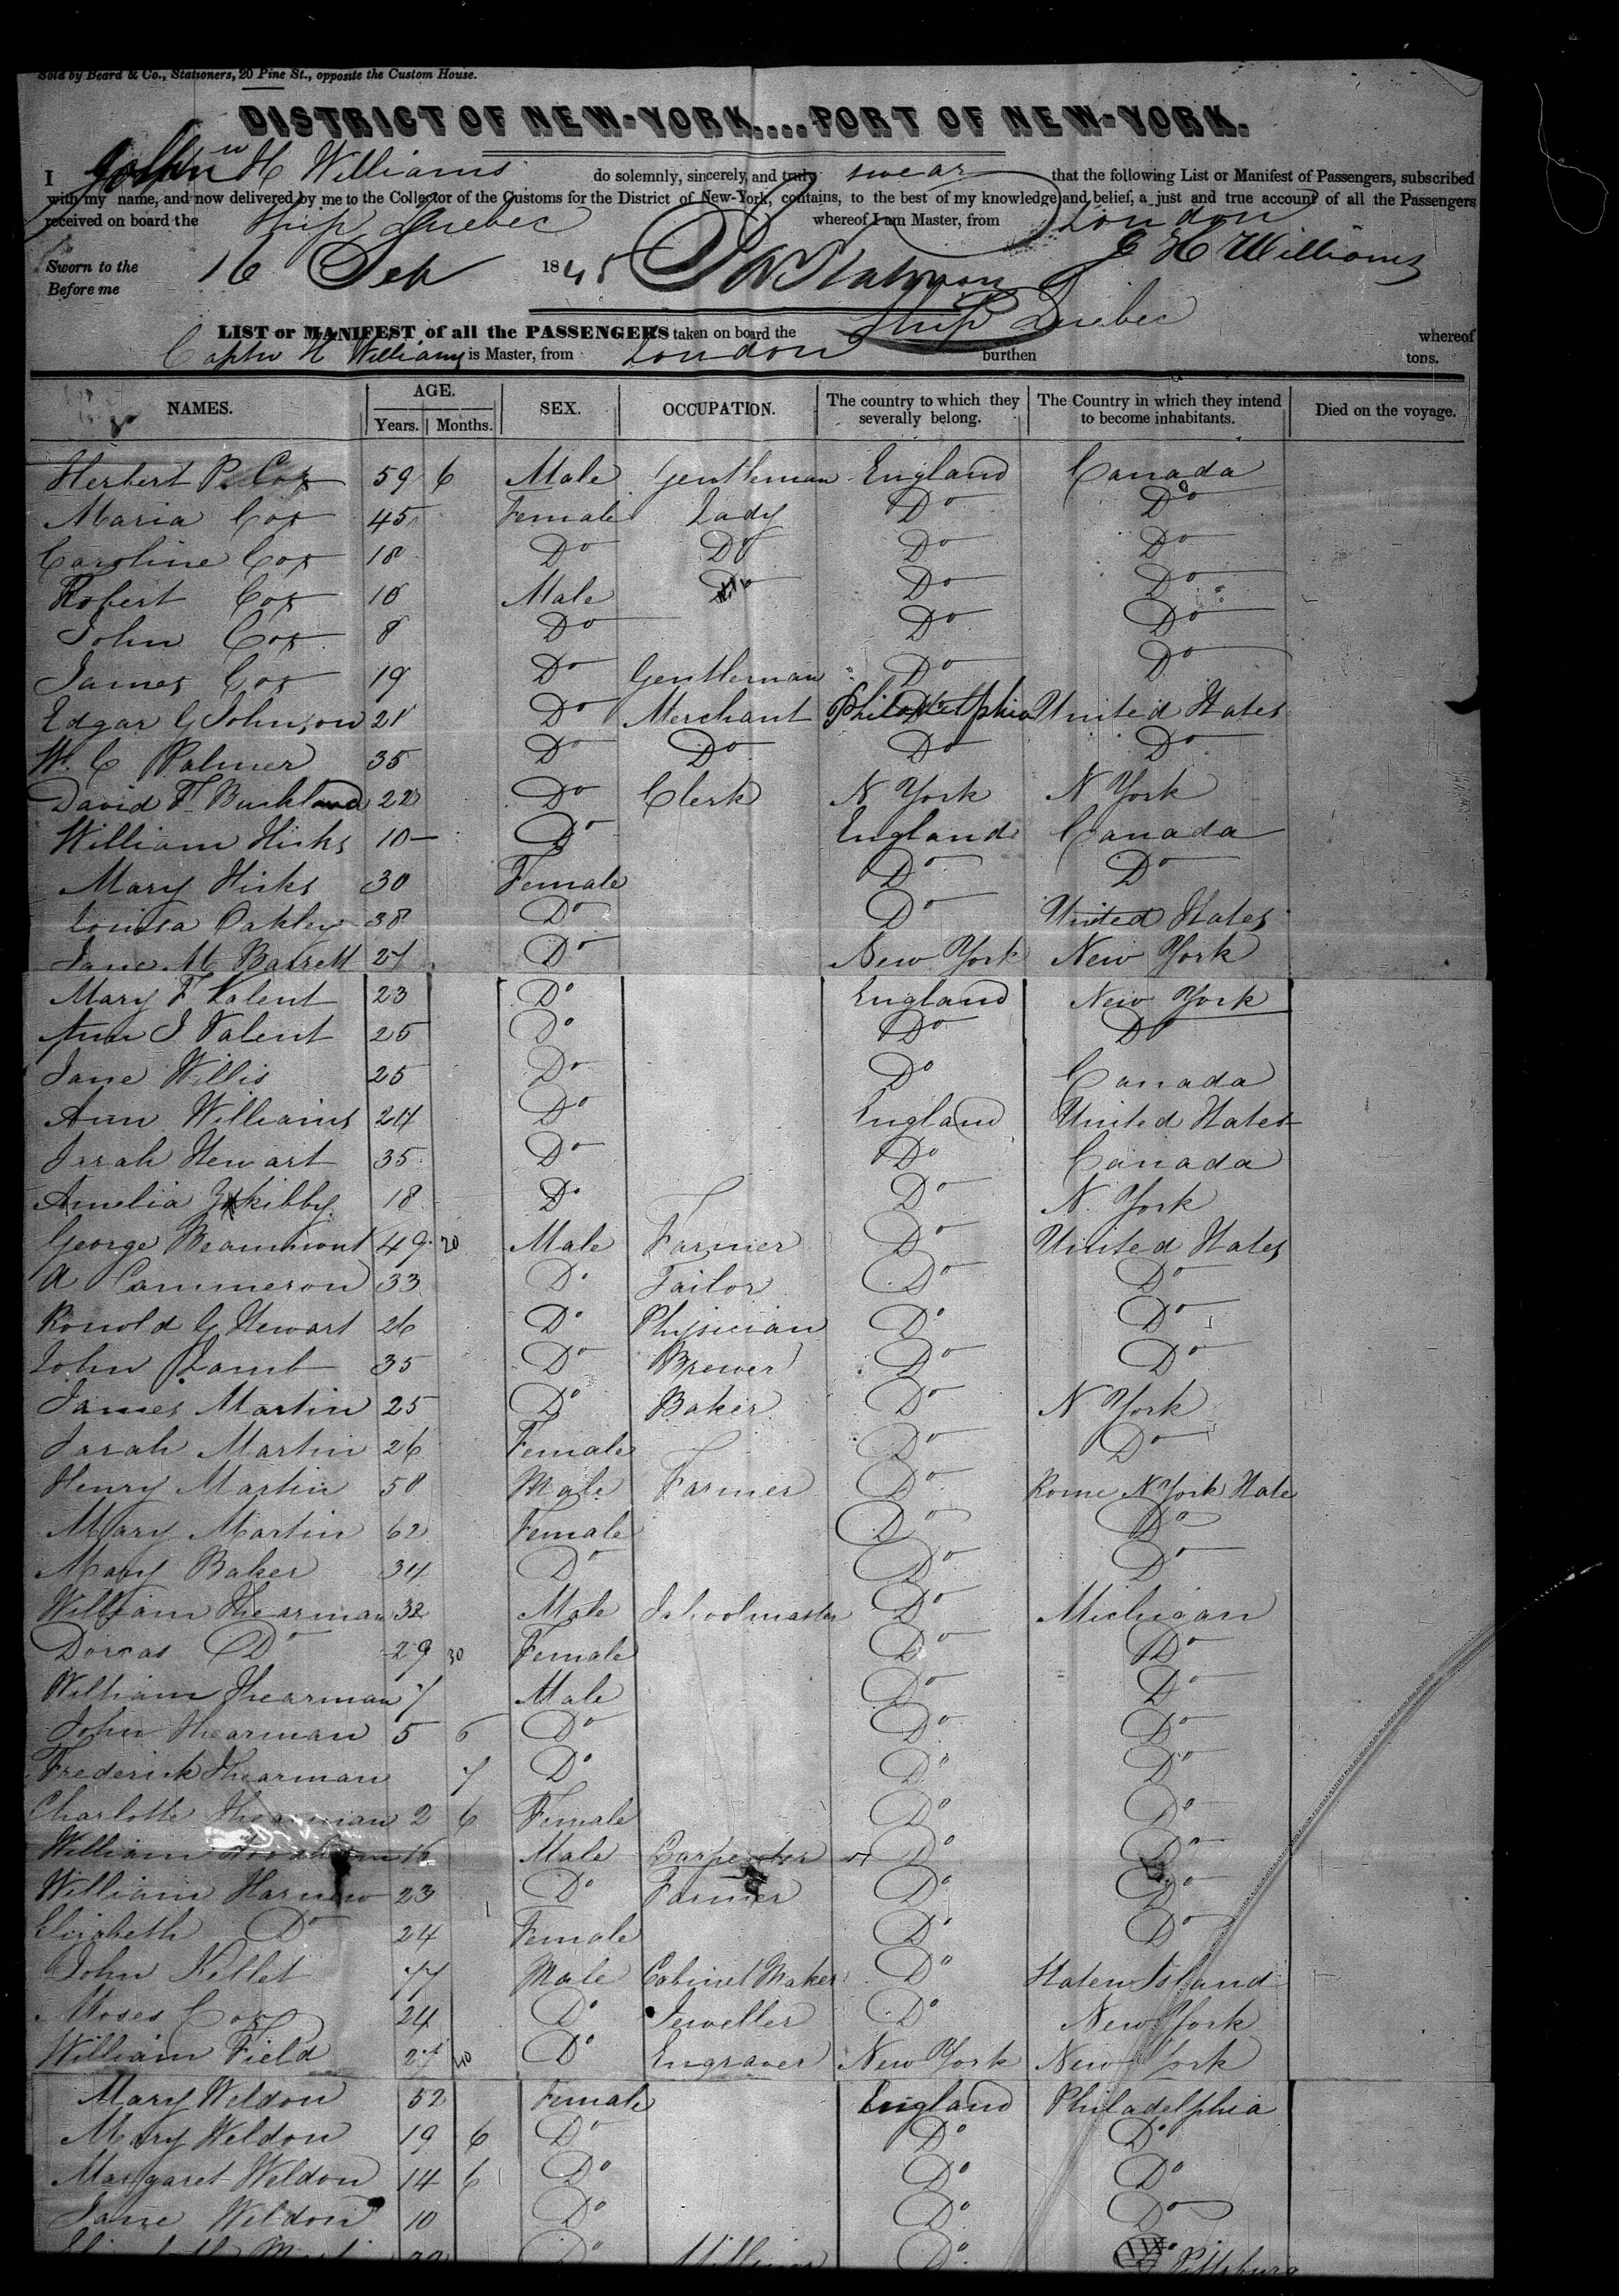 Sold by Beard & Co., Stationers, 20 Pine St., opposite the Custom House.
DISTRICT OF NEW-YORK....PORT OF NEW-YORK.
I H Williams do solemnly, sincerely, and truly swear that the following List or Manifest of Passengers, subscribed
with my name, and now delivered by me to the Collector of the Customs for the District of New-York, contains, to the best of my knowledge and belief, a just and true account of all the Passengers
received on board the Ship Quebec whereof I am Master, from London
Sworn to the 16 Feb 1845 H Williams
Before me
LIST or MANIFEST of all the PASSENGERS taken on board the Ship Quebec whereof
Captn H Williams is Master, from London burthen tons.
NAMES. AGE. Years. Months. SEX. OCCUPATION. The country to which they severally belong. The Country in which they intend to become inhabitants. Died on the voyage.
Herbert P. Cox 59 6 Male Gentleman England Canada
Maria Cox 45 Female Lady Do Do
Caroline Cox 18 Do Do Do Do
Robert Cox 10 Male Do Do
John Cox 8 Do Do Do
James Cox 19 Do Gentleman Do Do
Edgar G Johnson 21 Do Merchant Philadelphia United States
W. C Palmer 35 Do Do Do Do
David F Buckland 22 Do Clerk N York N York
William Hicks 10 Do England Canada
Mary Hicks 30 Female Do Do
Louisa Oakley 38 Do Do United States
Jane M Barrett 27 Do New York New York
Mary F Valent 23 Do England New York
Ann J Valent 25 Do Do Do
Jane Willis 25 Do Do Canada
Ann Williams 24 Do England United States
Sarah Stewart 35 Do Do Canada
Amelia 18 Do Do N. York
George Beaumont 49 20 Male Farmer Do United States
A Cammeron 33 Do Tailor Do Do
Ronold G Stewart 26 Do Physician Do Do
John Lamb 35 Do Brewer Do Do
James Martin 25 Do Baker Do N York
Sarah Martin 26 Female Do Do
Henry Martin 58 Male Farmer Do Rome N York State
Mary Martin 62 Female Do Do
Mary Baker 34 Do Do Do
William Shearman 32 Male Schoolmaster Do Michigan
Dorcas Do 29 30 Female Do Do
William Shearman 7 Male Do Do
John Shearman 5 6 Do Do Do
Frederick Shearman 7 Do Do Do
Charlotte Shearman 2 6 Female Do Do
William 16 Male Carpenter Do Do
William 23 Do Farmer Do Do
Elizabeth Do 24 Female Do Do
John Kellet 77 Male Cabinet Maker Do Staten Island
Moses Cox 24 Do Jeweller Do New York
William Field 27 40 Do Engraver New York New York
Mary Weldon 52 Female England Philadelphia
Mary Weldon 19 6 Do Do Do
Margaret Weldon 14 6 Do Do Do
Jane Weldon 10 Do Do Do
Do Do Pittsburg